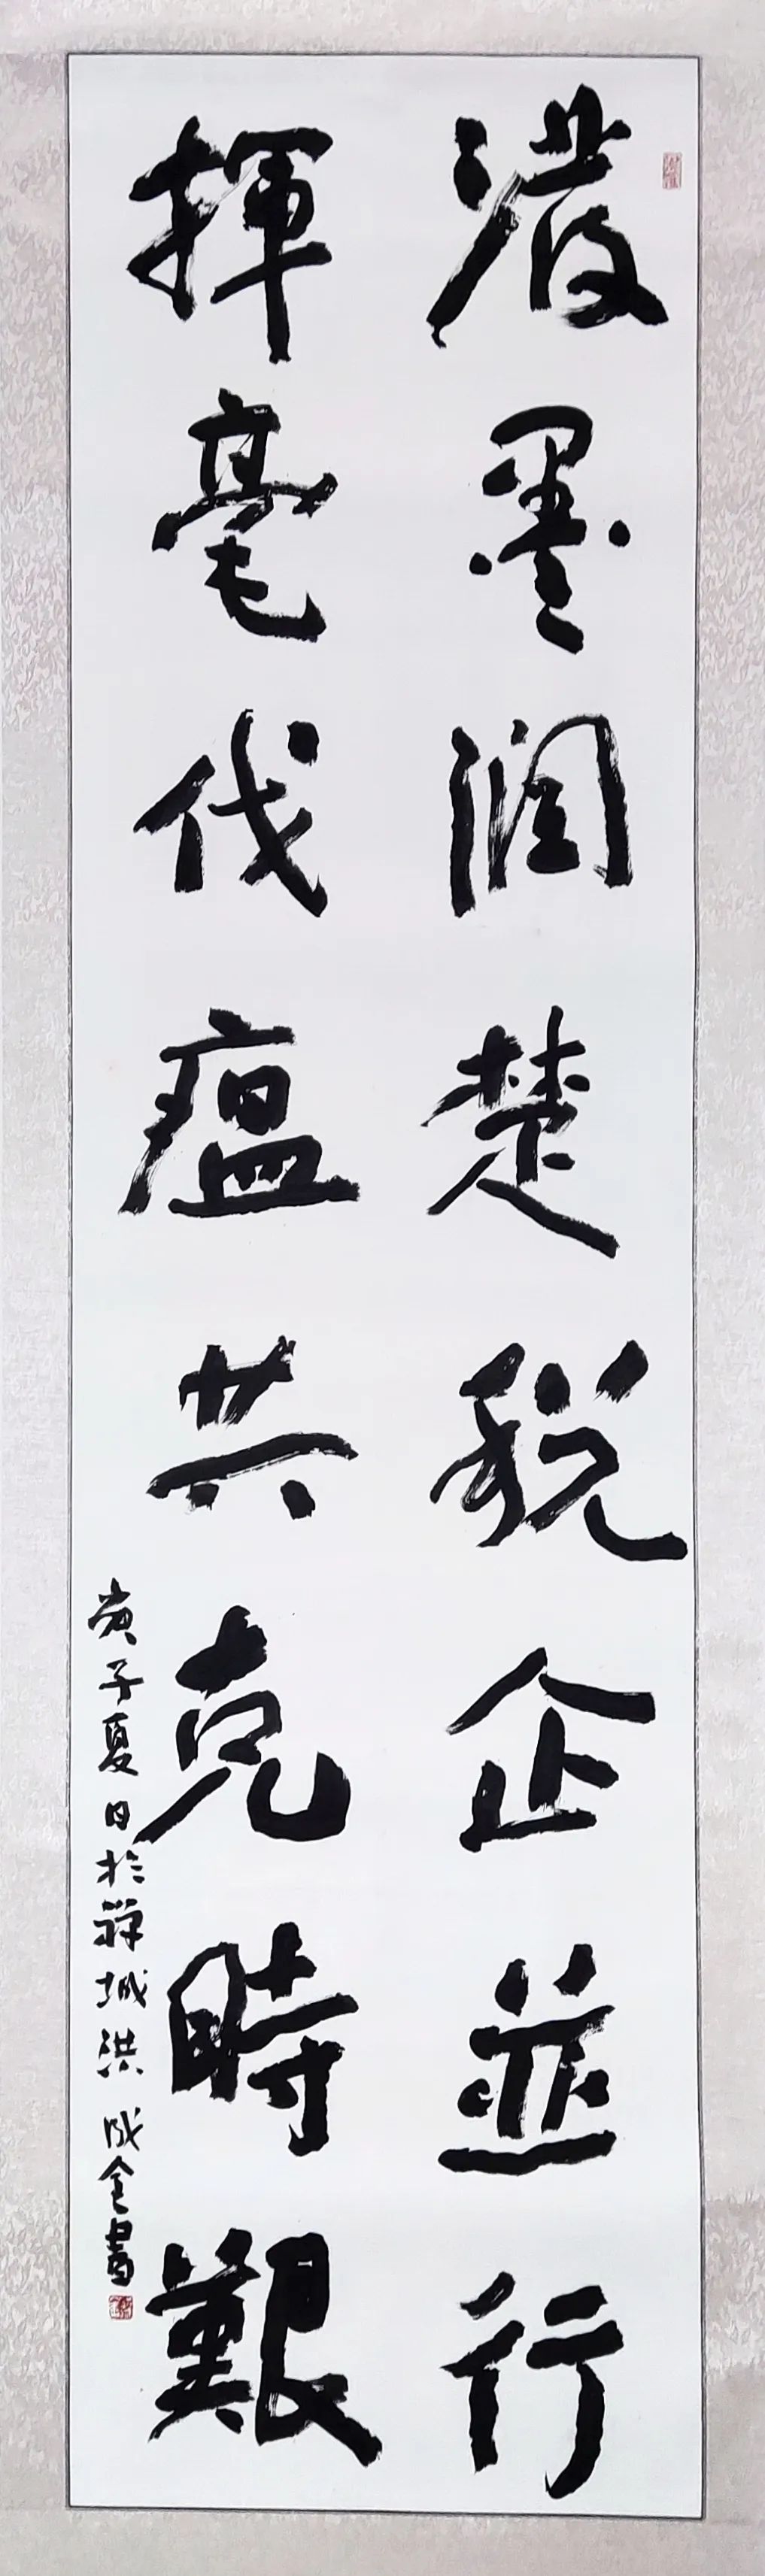 潑墨潤楚税企並行
揮毫伐瘟共克時艱
庚子夏日於禪城洪成金書